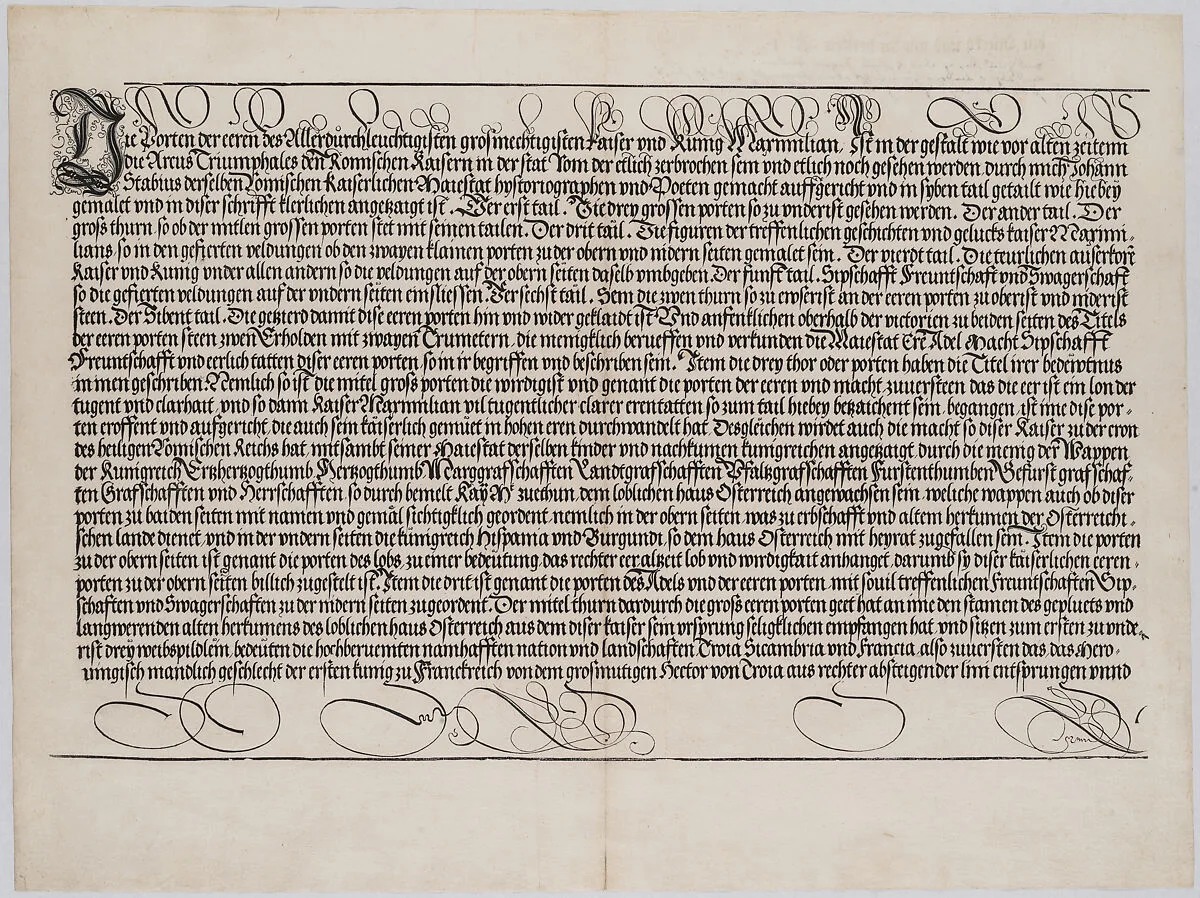 Die Porten der eeren des Allerdurchleuchtigisten grosmechtigisten Kaiser vnd Kunig Maxmilian, Ist in der gestalt wie vor alten zeitenn
die Arcus Triumphales den Romischen Kaisern in der stat Rom der etlich zerbrochen sein vnd etlich noch gesehen werden durch mich Johann
Stabius derselben Romischen Kaiserlichen Maiestat hystoriographen vnd Poeten gemacht auffgericht vnd in syben tail getailt wie hie bey
gemalet vnd in diser schrifft klerlichen angetzaigt ist. Der erst tail. Die drey grossen porten so zu vnderist gesehen werden. Der ander tail. Der
groß thurn so ob der mitlen grossen porten stet mit seinen tailen. Der drit tail. Die figuren der treffenlichen geschichten vnd gelucks kaiser Maximi-
lians so in den gefierten veldungen ob den zwayen klainen porten zu der obern vnd nidern seiten gemalet sein. Der vierdt tail. Die teurlichen auserkorn
Kaiser vnd Kunig vnder allen andern so die veldungen auf der obern seiten daselb vmbgeben. Der funft tail. Sipschafft Freuntschaft vnd Swagerschaft
so die gefierten veldungen auf der vndern seiten einsliessen. Der sechst tail. Sein die zwen thurn so zu ewserist an der eeren porten zu oberist vnd niderist
steen. Der Sibent tail. Die getzierd damit dise eeren porten hin vnd wider geklaidt ist Vnd anfenklichen oberhalb der victorien zu beiden seiten des Titels
der eeren porten steen zwen Erholden mit zwayen Trumetern, die menigklich berueffen vnd verkunden die Maiestat Ere Adel Macht Sipschafft
Freuntschafft vnd eerlich tatten diser eeren porten so in ir begriffen vnd beschriben sein. Item die drey thor oder porten haben die Titel irer bedewtnus
in inen geschriben. Nemlich so ist die mitel groß porten die wirdigist vnd genant die porten der eeren vnd macht zuuersteen das die eer ist ein lon der
tugent vnd clarhait, vnd so dann Kaiser Maxmilian vil tugentlicher clarer erentatten so zum tail hie bey betzaichent sein, begangen, ist ime dise por-
ten eroffent vnd aufgericht, die auch sein kaiserlich gemuet in hohen eren durchwandelt hat, Desgleichen wirdet auch die macht so diser Kaiser zu der cron
des heiligen Romischen Reichs hat, mitsambt seiner Maiestat derselben kinder vnd nachkumen kunigreichen angetzaigt, durch die menig der Wappen
der Kunigreich Ertzhertzogthumb Hertzogthumb Marggrafschafften Landtgrafschafften Pfaltzgrafschafften Furstenthumben Gefurst grafschaf-
ten Grafschafften vnd Herrschafften, so durch bemelt Kay Mt zuethun, dem loblichen haus Osterreich angewachsen sein, weliche wappen auch ob diser
porten zu baiden seiten mit namen vnd gemäl sichtigklich geordent, nemlich in der obern seiten, was zu erbschafft vnd altem herkumen der Osterreichi-
schen lande dienet, vnd in der vndern seiten die künigreich Hispania vnd Burgundi, so dem haus Osterreich mit heyrat zugefallen sein. Item die porten
zu der obern seiten ist genant die porten des lobs, zu einer bedeütung, das rechter eer altzeit lob vnd wirdigkait anhanget, darumb sy diser käiserlichen eeren-
porten zu der obern seiten billich zugestelt ist. Item die drit ist genant die porten des Adels vnd der eeren porten, mit souil treffenlichen Freuntschaften Sip-
schaften vnd Swagerschaften zu der nidern seiten zugeordent. Der mitel thurn dardurch die groß eeren porten geet hat an ime den stamen des gepluets vnd
langwerenden alten herkumens des loblichen haus Osterreich aus dem diser kaiser sein vrsprung seligklichen empfangen hat, vnd sitzen zum ersten zu vnde-
rist drey weibspildlein, bedeuten die hochberuemten namhafften nation vnd landschaften, Troia Sicambria vnd Francia, also zuuersten das, das Mero-
uingisch mandlich geschlecht der ersten kunig zu Franckreich von dem grosmutigen Hector von Troia aus rechter absteigender lini entsprungen vnnd